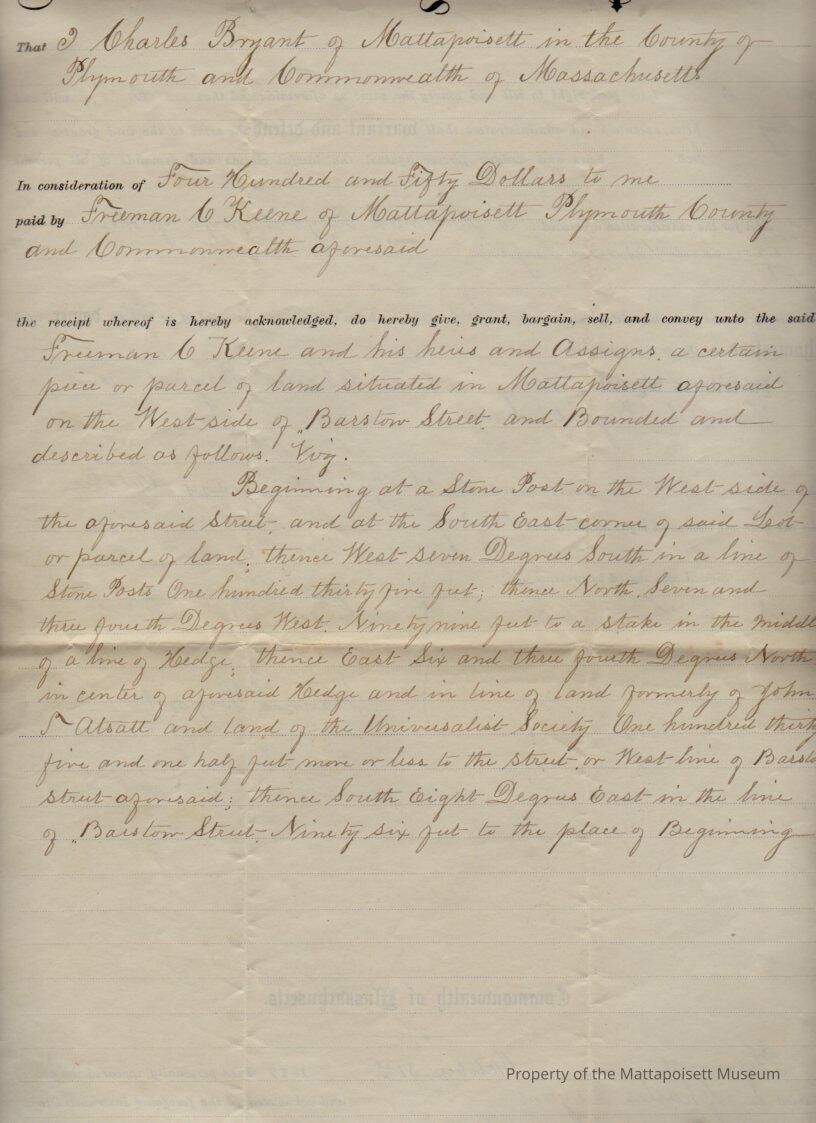 That I Charles Bryant of Mattapoisett in the County of
Plymouth and Commonwealth of Massachusetts
In consideration of Four Hundred and Fifty Dollars to me
paid by Freeman C Keene of Mattapoisett Plymouth County
and Commonwealth aforesaid
the receipt whereof is hereby acknowledged, do hereby give, grant, bargain, sell, and convey unto the said
Freeman C Keene and his heirs and Assigns, a certain
piece or parcel of land situated in Mattapoisett aforesaid
on the West side of Barstow Street and Bounded and
described as follows. Viz.
Beginning at a Stone Post on the West side of
the aforesaid Street, and at the South East corner of said Lot
or parcel of land; thence West seven Degrees South in a line of
Stone Posts One hundred thirty five feet; thence North Seven and
three fourth Degrees West. Ninety nine feet to a stake in the Middl
of a line of Hedge; thence East Six and three fourth Degrees North
in center of aforesaid Hedge and in line of land formerly of John
T Atsatt and land of the Universalist Society One hundred thirty
five and one half feet more or less to the street or West line of Barsto
street aforesaid; thence South Eight Degrees East in the line
of Barstow Street Ninety six feet to the place of Beginning
Commonwealth of Massachusetts.
Property of the Mattapoisett Museum